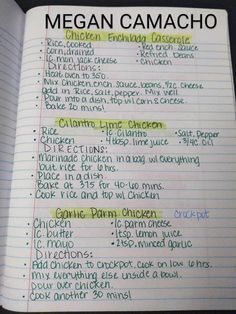 MEGAN CAMACHO
Chicken Enchilada Casserole
• Rice, cooked • Red ench. sauce
• corn, drained • Refried Beans
• 1c mon. jack cheese • Chicken
DIRECTIONS:
• Heat oven to 350.
• Mix Chicken, ench. sauce, beans, ½c cheese
add in Rice, salt, pepper. Mix well.
• Pour into a dish, top w/ corn & cheese.
• Bake 20 mins!
Cilantro Lime Chicken
• Rice • 1c. Cilantro • Salt, Pepper
• Chicken • 4 tbsp. lime juice • 3/4c. Oil
DIRECTIONS:
• Marinade chicken in a bag w/ everything
but rice for 6 hrs.
• Place in a dish
• Bake at 375 for 40-60 mins.
• Cook rice and top w/ Chicken
Garlic Parm Chicken Crockpot
• Chicken • 1c. parm cheese
• 1c. butter • 1 tsp. lemon juice
• 1c. mayo • 2 tsp. minced garlic
Directions:
• Add chicken to crockpot, cook on low 6 hrs.
• Mix everything else inside a bowl.
• Pour over chicken.
• Cook another 30 mins!